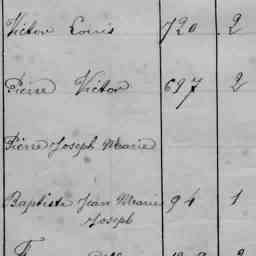 Victor Louis 720 2
Pierre Victor 697 2
Pierre Joseph Marie
Baptiste Jean Marie 94 1
Joseph